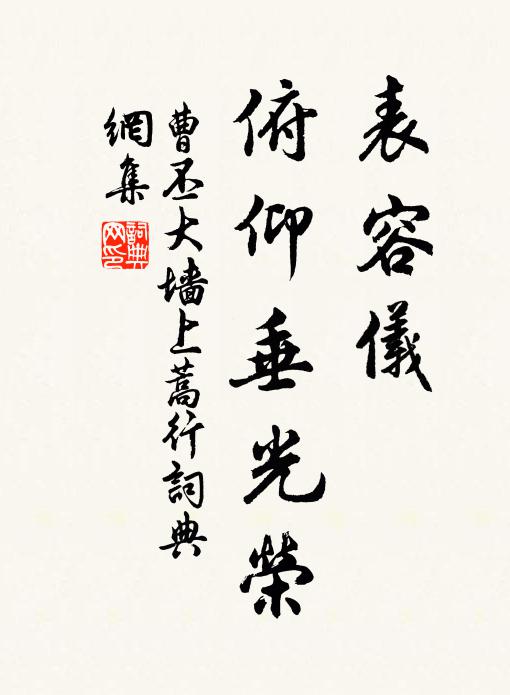 表容儀
俯仰垂光榮
曹丕大墙上蒿行詞典
網集
詞典
网印